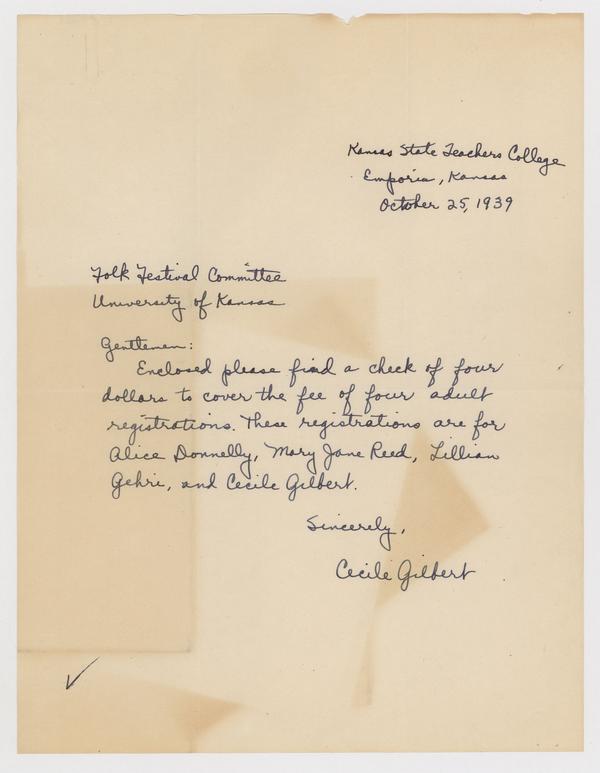 Kansas State Teachers College
Emporia, Kansas
October 25, 1939
Folk Festival Committee
University of Kansas
Gentlemen:
Enclosed please find a check of four
dollars to cover the fee of four adult
registrations. These registrations are for
Alice Donnelly, Mary Jane Reed, Lillian
Gehri, and Cecile Gilbert.
Sincerely,
Cecile Gilbert